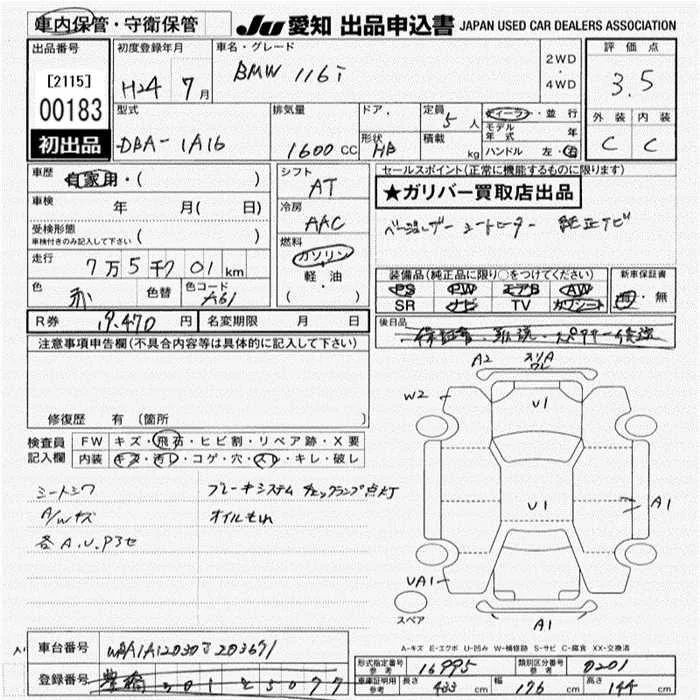 車内保管・守衛保管
JU 愛知 出品申込書 JAPAN USED CAR DEALERS ASSOCIATION
出品番号
[2115]
00183
初出品
初度登録年月
H24 7月
車名・グレード
BMW 116i
2WD・4WD
評価点
3.5
外装 内装
C C
型式
DBA-1A16
排気量
1600cc
ドア・形状
HB
定員 5人
積載 kg
ディーラー・並行
モデル年式 年
ハンドル 左・右
車歴 自家用・( )
車検 年 月( 日)
受検形態
車検付きのみ記入して下さい ( )
走行 7万5千701km
色 赤 色替 色コード A61
シフト
AT
冷房
AAC
燃料
ガソリン・軽油・( )
セールスポイント(正常に機能するものに限ります)
★ガリバー買取店出品
純正ナビ
装備品(純正品に限り○をつけてください)
PS PW エアB AW
SR ナビ TV カワシート
新車保証書
有・無
R券 9,470円 名変期限 月 日
後日品
注意事項申告欄(不具合内容等は具体的に記入して下さい)
修復歴 有 〔箇所 〕
検査員記入欄
FW キズ・飛石・ヒビ割・リペア跡・X要
内装 キズ・汚レ・コゲ・穴・スレ・キレ・破レ
シートシワ
A/Wキズ
各A.U.P3セ
ブレーキシステム チェックランプ点灯
オイルもれ
A2 スリA ワレ
W2
U1
U1
A1
UA1
A1
スペア
A-キズ E-エクボ U-凹み W-補修跡 S-サビ C-腐食 XX-交換済
車台番号 WBA1A12030J203671
登録番号 豊橋 301 て 5077
形式指定番号 参考 16995
類別区分番号 参考 0201
車庫証明用 参考 長さ 433cm 幅 176cm 高さ 144cm